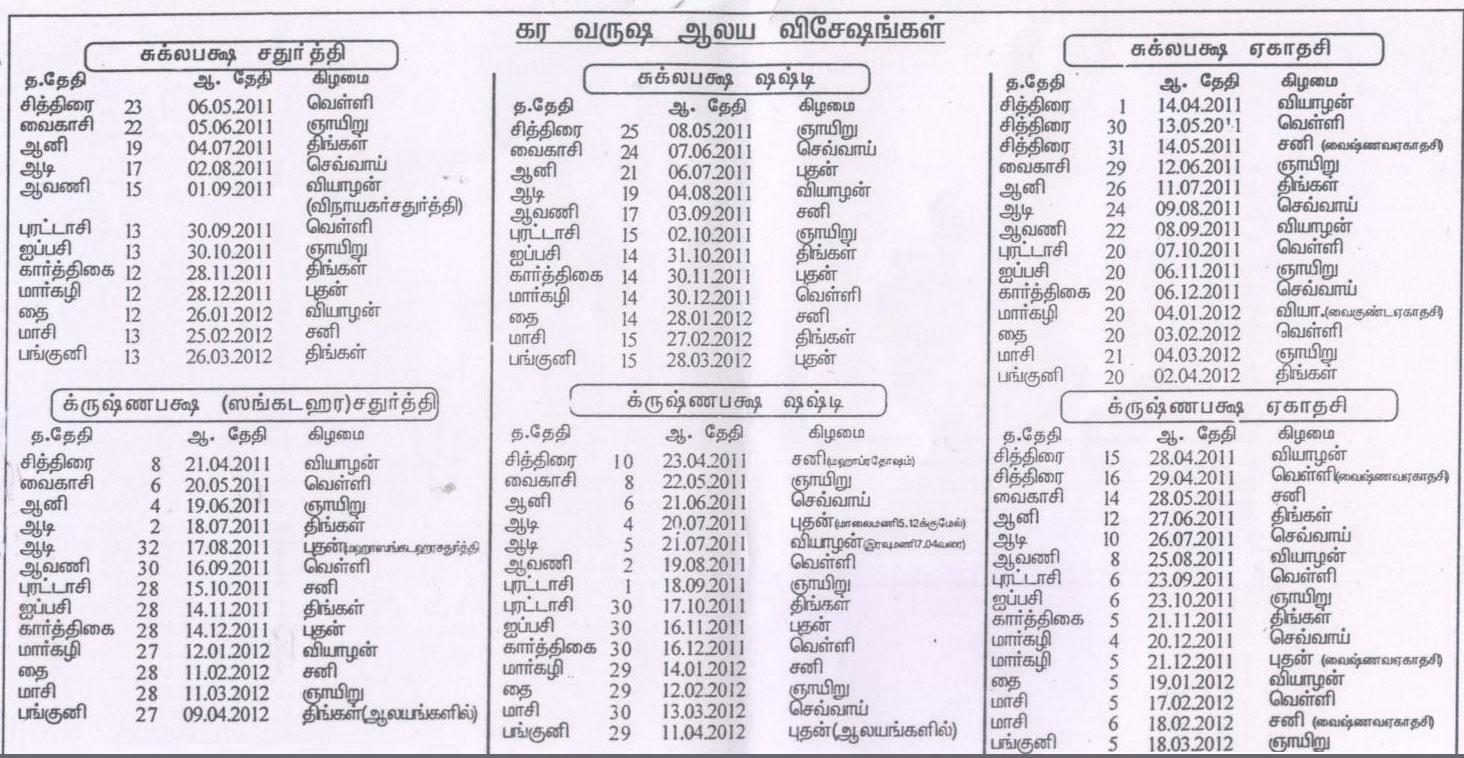 கர வருஷ ஆலய விசேஷங்கள்
சுக்லபக்ஷ சதுர்த்தி
த.தேதி ஆ. தேதி கிழமை
சித்திரை 23 06.05.2011 வெள்ளி
வைகாசி 22 05.06.2011 ஞாயிறு
ஆனி 19 04.07.2011 திங்கள்
ஆடி 17 02.08.2011 செவ்வாய்
ஆவணி 15 01.09.2011 வியாழன்
(விநாயகர்சதுர்த்தி)
புரட்டாசி 13 30.09.2011 வெள்ளி
ஐப்பசி 13 30.10.2011 ஞாயிறு
கார்த்திகை 12 28.11.2011 திங்கள்
மார்கழி 12 28.12.2011 புதன்
தை 12 26.01.2012 வியாழன்
மாசி 13 25.02.2012 சனி
பங்குனி 13 26.03.2012 திங்கள்
க்ருஷ்ணபக்ஷ (ஸங்கடஹர)சதுர்த்தி
த.தேதி ஆ. தேதி கிழமை
சித்திரை 8 21.04.2011 வியாழன்
வைகாசி 6 20.05.2011 வெள்ளி
ஆனி 4 19.06.2011 ஞாயிறு
ஆடி 2 18.07.2011 திங்கள்
ஆடி 32 17.08.2011 புதன்(மஹாஸங்கடஹரசதுர்த்தி
ஆவணி 30 16.09.2011 வெள்ளி
புரட்டாசி 28 15.10.2011 சனி
ஐப்பசி 28 14.11.2011 திங்கள்
கார்த்திகை 28 14.12.2011 புதன்
மார்கழி 27 12.01.2012 வியாழன்
தை 28 11.02.2012 சனி
மாசி 28 11.03.2012 ஞாயிறு
பங்குனி 27 09.04.2012 திங்கள்(ஆலயங்களில்)
சுக்லபக்ஷ ஷஷ்டி
த.தேதி ஆ. தேதி கிழமை
சித்திரை 25 08.05.2011 ஞாயிறு
வைகாசி 24 07.06.2011 செவ்வாய்
ஆனி 21 06.07.2011 புதன்
ஆடி 19 04.08.2011 வியாழன்
ஆவணி 17 03.09.2011 சனி
புரட்டாசி 15 02.10.2011 ஞாயிறு
ஐப்பசி 14 31.10.2011 திங்கள்
கார்த்திகை 14 30.11.2011 புதன்
மார்கழி 14 30.12.2011 வெள்ளி
தை 14 28.01.2012 சனி
மாசி 15 27.02.2012 திங்கள்
பங்குனி 15 28.03.2012 புதன்
க்ருஷ்ணபக்ஷ ஷஷ்டி
த.தேதி ஆ. தேதி கிழமை
சித்திரை 10 23.04.2011 சனி(மஹாப்ரதோஷம்)
வைகாசி 8 22.05.2011 ஞாயிறு
ஆனி 6 21.06.2011 செவ்வாய்
ஆடி 4 20.07.2011 புதன்(மாலைமணி5.12க்குமேல்)
ஆடி 5 21.07.2011 வியாழன்(இரவுமணி7.04வரை)
ஆவணி 2 19.08.2011 வெள்ளி
புரட்டாசி 1 18.09.2011 ஞாயிறு
புரட்டாசி 30 17.10.2011 திங்கள்
ஐப்பசி 30 16.11.2011 புதன்
கார்த்திகை 30 16.12.2011 வெள்ளி
மார்கழி 29 14.01.2012 சனி
தை 29 12.02.2012 ஞாயிறு
மாசி 30 13.03.2012 செவ்வாய்
பங்குனி 29 11.04.2012 புதன்(ஆலயங்களில்)
சுக்லபக்ஷ ஏகாதசி
த.தேதி ஆ. தேதி கிழமை
சித்திரை 1 14.04.2011 வியாழன்
சித்திரை 30 13.05.2011 வெள்ளி
சித்திரை 31 14.05.2011 சனி (வைஷ்ணவஏகாதசி)
வைகாசி 29 12.06.2011 ஞாயிறு
ஆனி 26 11.07.2011 திங்கள்
ஆடி 24 09.08.2011 செவ்வாய்
ஆவணி 22 08.09.2011 வியாழன்
புரட்டாசி 20 07.10.2011 வெள்ளி
ஐப்பசி 20 06.11.2011 ஞாயிறு
கார்த்திகை 20 06.12.2011 செவ்வாய்
மார்கழி 20 04.01.2012 வியா.(வைகுண்டஏகாதசி)
தை 20 03.02.2012 வெள்ளி
மாசி 21 04.03.2012 ஞாயிறு
பங்குனி 20 02.04.2012 திங்கள்
க்ருஷ்ணபக்ஷ ஏகாதசி
த.தேதி ஆ. தேதி கிழமை
சித்திரை 15 28.04.2011 வியாழன்
சித்திரை 16 29.04.2011 வெள்ளி(வைஷ்ணவஏகாதசி)
வைகாசி 14 28.05.2011 சனி
ஆனி 12 27.06.2011 திங்கள்
ஆடி 10 26.07.2011 செவ்வாய்
ஆவணி 8 25.08.2011 வியாழன்
புரட்டாசி 6 23.09.2011 வெள்ளி
ஐப்பசி 6 23.10.2011 ஞாயிறு
கார்த்திகை 5 21.11.2011 திங்கள்
மார்கழி 4 20.12.2011 செவ்வாய்
மார்கழி 5 21.12.2011 புதன் (வைஷ்ணவஏகாதசி)
தை 5 19.01.2012 வியாழன்
மாசி 5 17.02.2012 வெள்ளி
மாசி 6 18.02.2012 சனி (வைஷ்ணவஏகாதசி)
பங்குனி 5 18.03.2012 ஞாயிறு